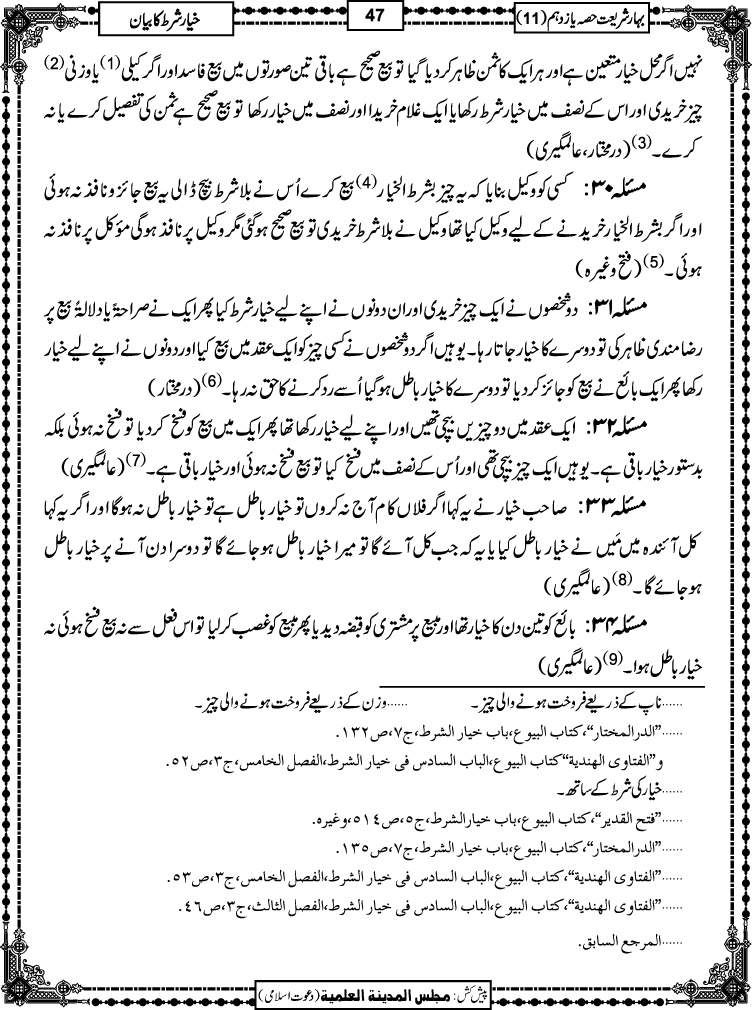 بہار شریعت حصہ یازدہم (11)
47
خیار شرط کا بیان
نہیں اگر محل خیار متعین ہے اور ہر ایک کا ثمن ظاہر کر دیا گیا تو بیع صحیح ہے باقی تین صورتوں میں بیع فاسد اور اگر کیلی (1) یا وزنی (2)
چیز خریدی اور اس کے نصف میں خیار شرط رکھا یا ایک غلام خریدا اور نصف میں خیار رکھا تو بیع صحیح ہے ثمن کی تفصیل کرے یا نہ
کرے۔ (3) (درمختار، عالمگیری)
مسئلہ ۳۰: کسی کو وکیل بنایا کہ یہ چیز بشرط الخیار (4) بیع کرے اُس نے بلا شرط بیچ ڈالی یہ بیع جائز و نافذ نہ ہوئی
اور اگر بشرط الخیار خریدنے کے لیے وکیل کیا تھا وکیل نے بلا شرط خریدی تو بیع صحیح ہوگئی مگر وکیل پر نافذ ہوگی مؤکل پر نافذ نہ
ہوئی۔ (5) (فتح وغیرہ)
مسئلہ ۳۱: دو شخصوں نے ایک چیز خریدی اور ان دونوں نے اپنے لیے خیار شرط کیا پھر ایک نے صراحۃً یا دلالۃً بیع پر
رضامندی ظاہر کی تو دوسرے کا خیار جاتا رہا۔ یوہیں اگر دو شخصوں نے کسی چیز کو ایک عقد میں بیع کیا اور دونوں نے اپنے لیے خیار
رکھا پھر ایک بائع نے بیع کو جائز کر دیا تو دوسرے کا خیار باطل ہوگیا اُسے رد کرنے کا حق نہ رہا۔ (6) (درمختار)
مسئلہ ۳۲: ایک عقد میں دو چیزیں بیچی تھیں اور اپنے لیے خیار رکھا تھا پھر ایک میں بیع کو فسخ کر دیا تو فسخ نہ ہوئی بلکہ
بدستور خیار باقی ہے۔ یوہیں ایک چیز بیچی تھی اور اُس کے نصف میں فسخ کیا تو بیع فسخ نہ ہوئی اور خیار باقی ہے۔ (7) (عالمگیری)
مسئلہ ۳۳: صاحب خیار نے یہ کہا اگر فلاں کام آج نہ کروں تو خیار باطل ہے تو خیار باطل نہ ہوگا اور اگر یہ کہا
کل آئندہ میں مَیں نے خیار باطل کیا یا یہ کہ جب کل آئے گا تو میرا خیار باطل ہو جائے گا تو دوسرا دن آنے پر خیار باطل
ہو جائے گا۔ (8) (عالمگیری)
مسئلہ ۳۴: بائع کو تین دن کا خیار تھا اور مبیع پر مشتری کو قبضہ دیدیا پھر مبیع کو غصب کرلیا تو اس فعل سے نہ بیع فسخ ہوئی نہ
خیار باطل ہوا۔ (9) (عالمگیری)
......ناپ کے ذریعے فروخت ہونے والی چیز۔ ......وزن کے ذریعے فروخت ہونے والی چیز۔
......"الدرالمختار"، کتاب البیوع، باب خیار الشرط، ج۷، ص۱۳۲.
و"الفتاوی الھندیة" کتاب البیوع، الباب السادس فی خیار الشرط، الفصل الخامس، ج۳، ص۵۲.
......خیار کی شرط کے ساتھ۔
......"فتح القدیر"، کتاب البیوع، باب خیار الشرط، ج۵، ص۵۱۴، وغیرہ.
......"الدرالمختار"، کتاب البیوع، باب خیار الشرط، ج۷، ص۱۳۵.
......"الفتاوی الھندیة"، کتاب البیوع، الباب السادس فی خیار الشرط، الفصل الخامس، ج۳، ص۵۳.
......"الفتاوی الھندیة"، کتاب البیوع، الباب السادس فی خیار الشرط، الفصل الثالث، ج۳، ص۴۶.
......المرجع السابق.
پیش کش: مجلس المدینة العلمیة (دعوت اسلامی)